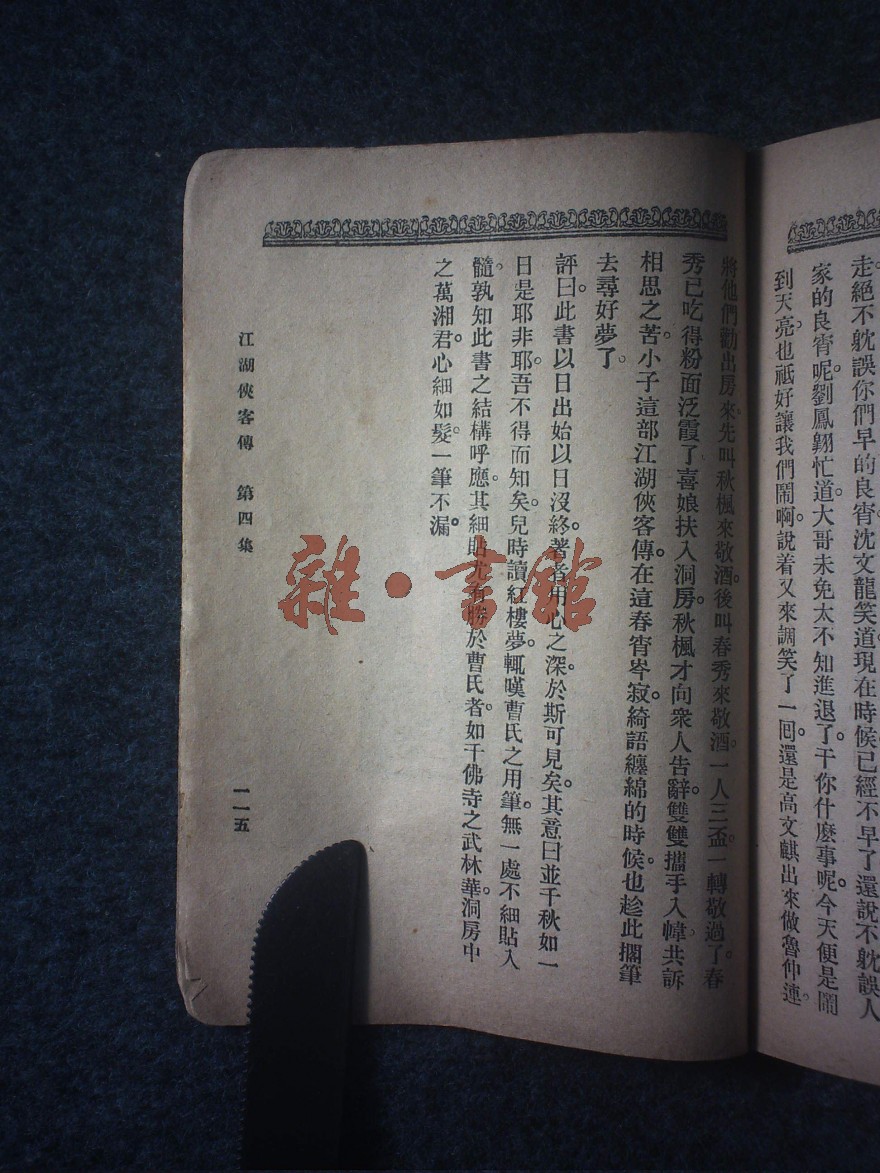 走絕不躭誤你們早的良宵。沈文龍笑道現在時候已經不早了還說不躭誤人
家的良宵呢。劉鳳翺忙道。大哥未免太不知進退了。干你什麽事呢。今天便是鬧
到天亮。也祗好讓我們鬧啊。說着又來調笑了一囘。還是高文麒出來做魯仲連。
將他們勸出房來。先叫秋楓來敬酒。後叫春秀來敬酒。一人三盃。一轉敬過了。春
秀已吃得粉面泛霞了。喜娘扶入洞房。秋楓才向衆人告辭。雙雙攜手入幃。共訴
相思之苦。小子這部江湖俠客傳。在這春宵岑寂。綺語纏綿的時候。也趁此擱筆
去尋好夢了。
評曰。此書以日出始以日沒終。著者用心之深。於斯可見矣。其意曰並千秋如一
日是耶非耶。吾不得而知矣。兒時讀紅樓夢。輒嘆曹氏之用筆。無一處不細貼入
髓。孰知此書之結構呼應。其細貼尤有勝於曹氏者。如千佛寺之武林華。洞房中
之萬湘君。心細如髮。一筆不漏。
江湖俠客傳 第四集
一一五
雜·書館